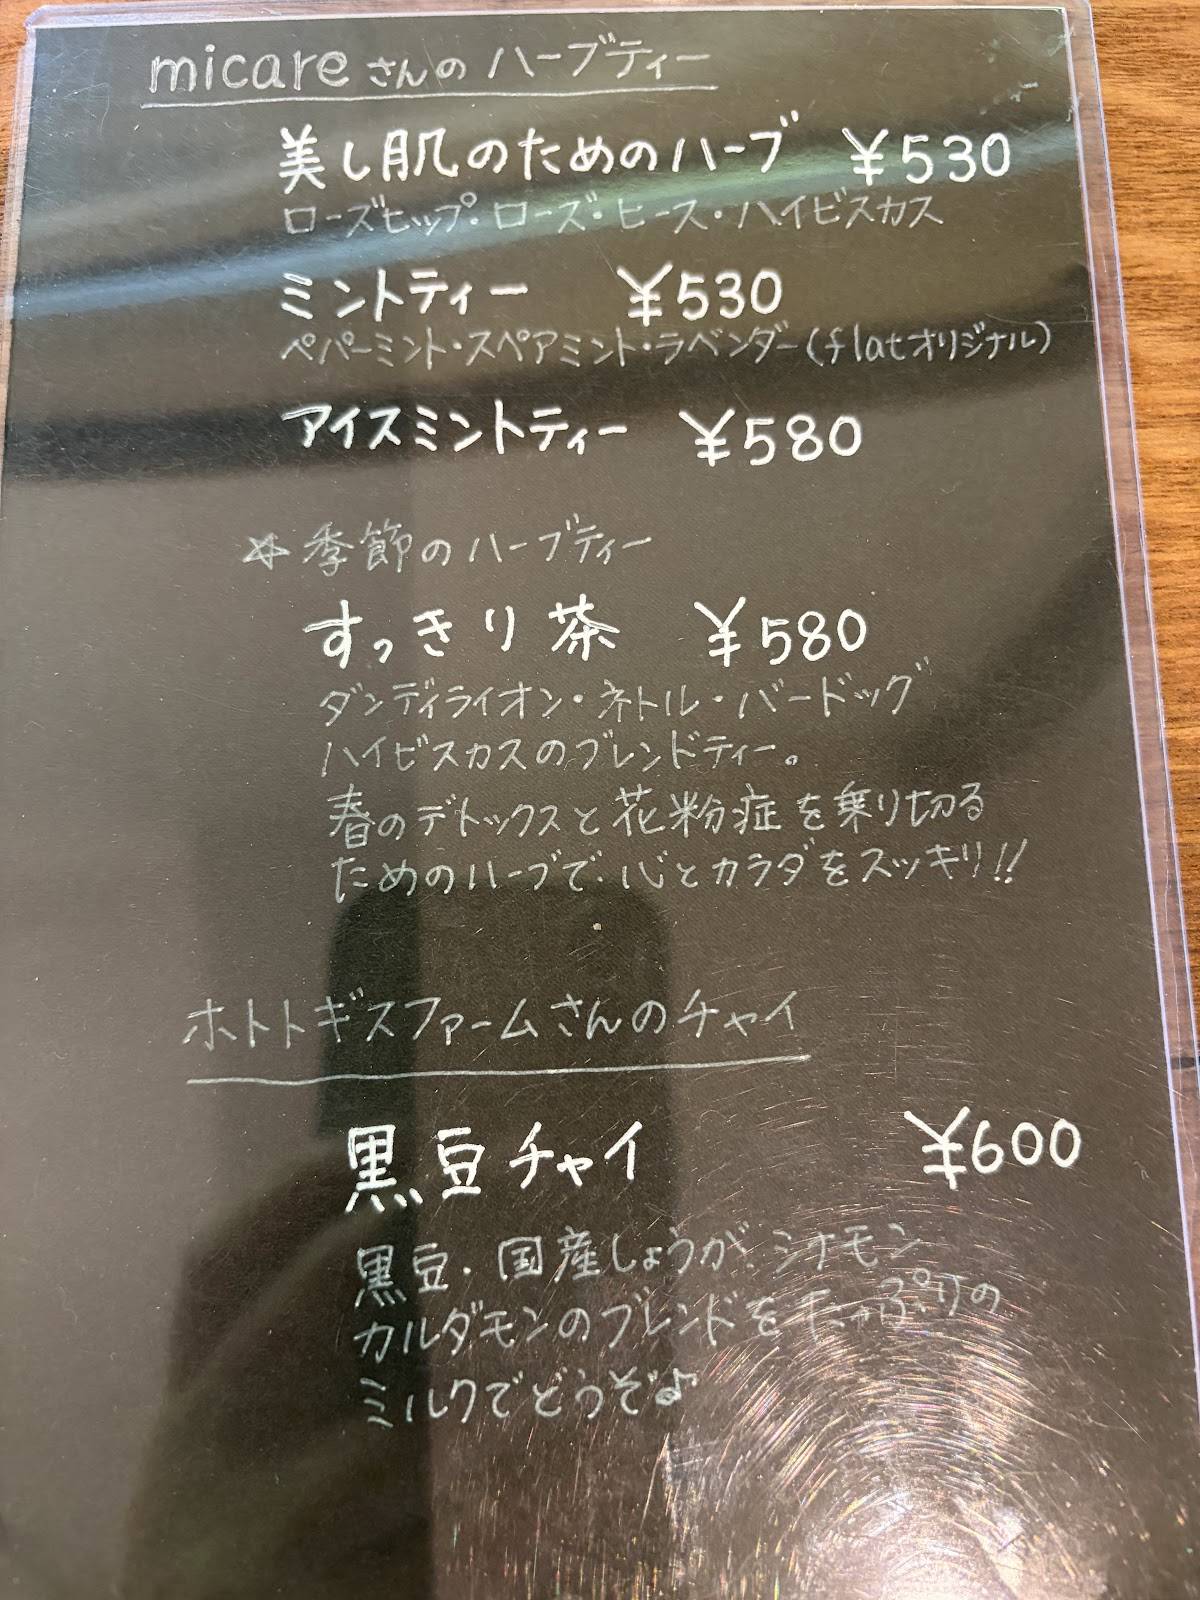 micareさんのハーブティー
美し肌のためのハーブ ¥530
ローズヒップ・ローズ・ヒース・ハイビスカス
ミントティー ¥530
ペパーミント・スペアミント・ラベンダー(flatオリジナル)
アイスミントティー ¥580
☆季節のハーブティー
すっきり茶 ¥580
ダンディライオン・ネトル・バードッグ
ハイビスカスのブレンドティー。
春のデトックスと花粉症を乗り切る
ためのハーブで、心とカラダをスッキリ!!
ホトトギスファームさんのチャイ
黒豆チャイ ¥600
黒豆、国産しょうが、シナモン
カルダモンのブレンドをたっぷりの
ミルクでどうぞ♪